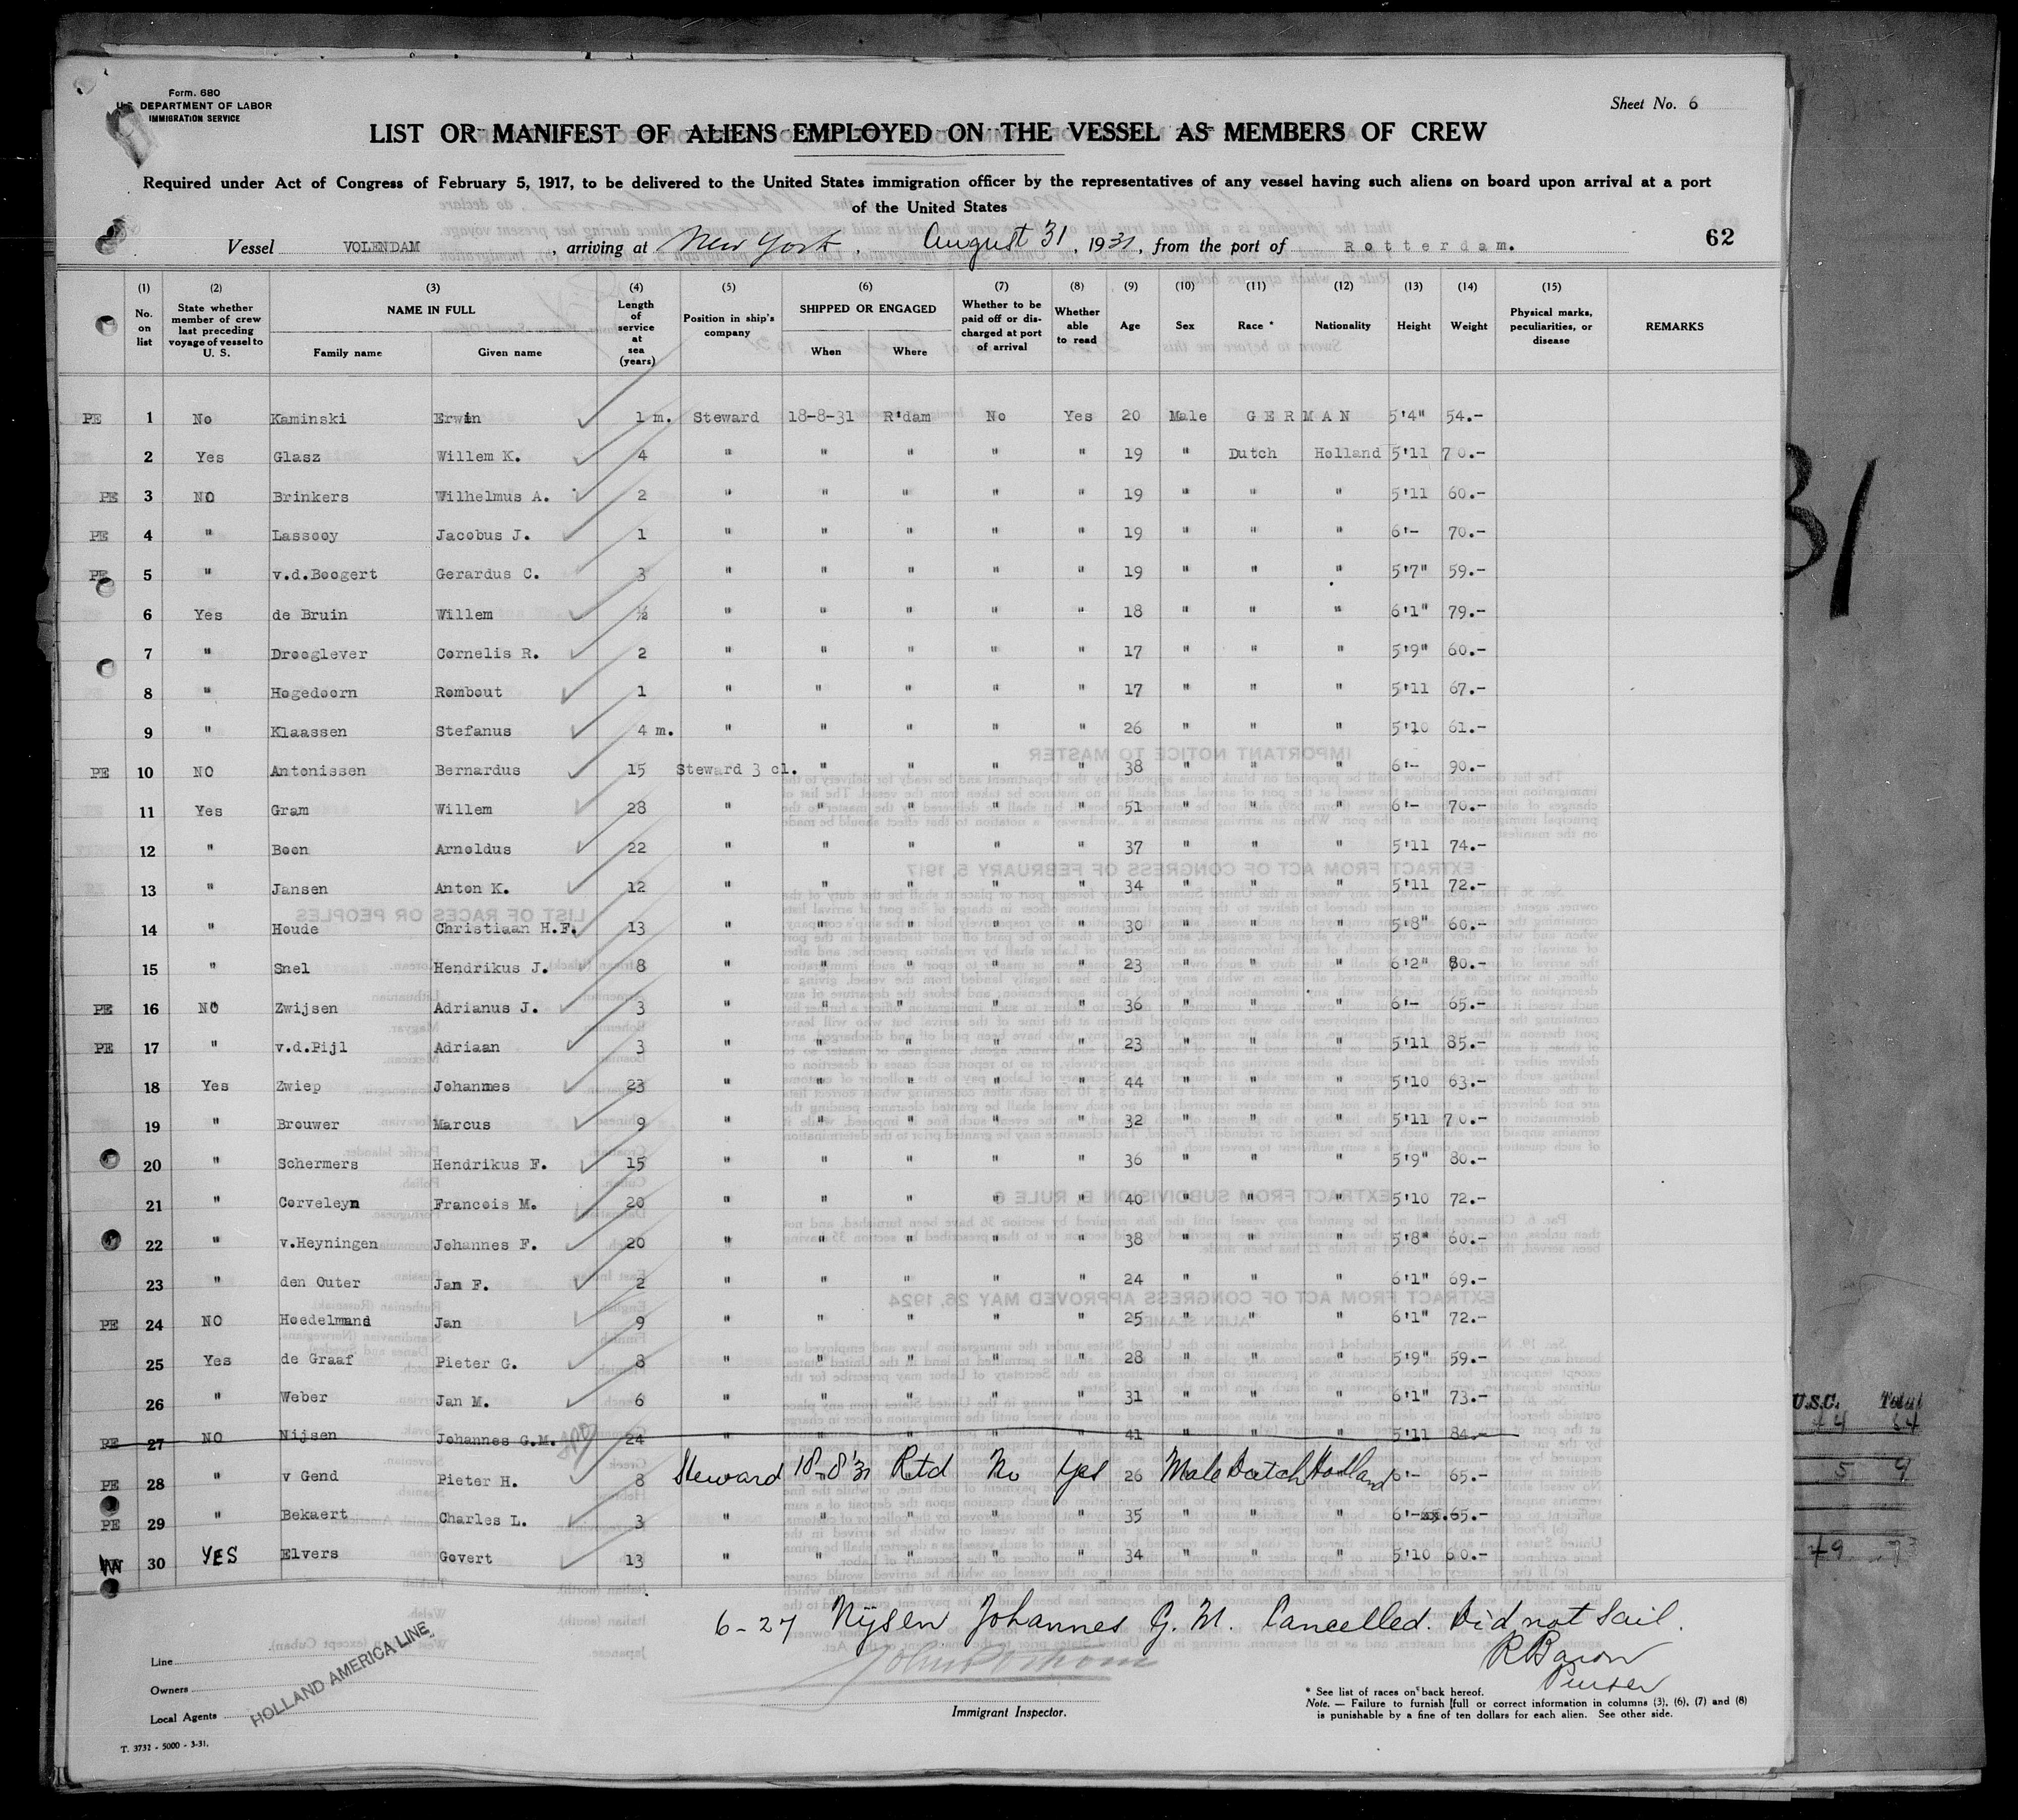 Form. 680
U.S. DEPARTMENT OF LABOR
IMMIGRATION SERVICE
Sheet No. 6
LIST OR MANIFEST OF ALIENS EMPLOYED ON THE VESSEL AS MEMBERS OF CREW
Required under Act of Congress of February 5, 1917, to be delivered to the United States immigration officer by the representatives of any vessel having such aliens on board upon arrival at a port
of the United States
Vessel VOLENDAM, arriving at New York, August 31, 1931, from the port of Rotterdam.
62
(1) No. on list (2) State whether member of crew last preceding voyage of vessel to U. S. (3) NAME IN FULL Family name Given name (4) Length of service at sea (years) (5) Position in ship's company (6) SHIPPED OR ENGAGED When Where (7) Whether to be paid off or discharged at port of arrival (8) Whether able to read (9) Age (10) Sex (11) Race * (12) Nationality (13) Height (14) Weight (15) Physical marks, peculiarities, or disease REMARKS
PE 1 No Kaminski Erwin 1 m. Steward 18-8-31 R'dam No Yes 20 Male GERMAN 5'4" 54.-
2 Yes Glasz Willem K. 4 " " " " " 19 " Dutch Holland 5'11 70.-
PE 3 NO Brinkers Wilhelmus A. 2 " " " " " 19 " " " 5'11 60.-
PE 4 " Lassooy Jacobus J. 1 " " " " " 19 " " " 6'- 70.-
PE 5 " v.d.Boogert Gerardus C. 3 " " " " " 19 " " " 5'7" 59.-
6 Yes de Bruin Willem ½ " " " " " 18 " " " 6'1" 79.-
7 " Drooglever Cornelis R. 2 " " " " " 17 " " " 5'9" 60.-
8 " Hogedoorn Rombout 1 " " " " " 17 " " " 5'11 67.-
9 " Klaassen Stefanus 4 m. " " " " " 26 " " " 5'10 61.-
PE 10 NO Antonissen Bernardus 15 Steward 3 cl. " " " " 38 " " " 6'- 90.-
11 Yes Gram Willem 28 " " " " " 51 " " " 6'- 70.-
12 " Boon Arnoldus 22 " " " " " 37 " " " 5'11 74.-
13 " Jansen Anton K. 12 " " " " " 34 " " " 5'11 72.-
14 " Houde Christiaan H.F. 13 " " " " " 30 " " " 5'8" 60.-
15 " Snel Hendrikus J. 8 " " " " " 23 " " " 6'2" 80.-
PE 16 NO Zwijsen Adrianus J. 3 " " " " " 36 " " " 6'- 65.-
PE 17 " v.d.Pijl Adriaan 3 " " " " " 23 " " " 5'11 85.-
18 Yes Zwiep Johannes 23 " " " " " 44 " " " 5'10 63.-
19 " Brouwer Marcus 9 " " " " " 32 " " " 5'11 70.-
20 " Schermers Hendrikus F. 15 " " " " " 36 " " " 5'9" 80.-
21 " Corveleyn Francois M. 20 " " " " " 40 " " " 5'10 72.-
22 " v.Heyningen Johannes F. 20 " " " " " 38 " " " 5'8" 60.-
23 " den Outer Jan F. 2 " " " " " 24 " " " 6'1" 69.-
PE 24 NO Hoedelmans Jan 9 " " " " " 25 " " " 6'1" 72.-
25 Yes de Graaf Pieter G. 8 " " " " " 28 " " " 5'9" 59.-
26 " Weber Jan M. 6 " " " " " 31 " " " 6'1" 73.-
PE 27 NO Nijsen Johannes G.M. 24 " " " " " 41 " " " 5'11 84.-
PE 28 " v Gend Pieter H. 8 Steward 18-8'31 Rtd No Yes 26 Male Dutch Holland 6'- 65.-
PE 29 " Bekaert Charles L. 3 " " " " " 35 " " " 6'- 65.-
30 YES Elvers Govert 13 " " " " " 34 " " " 5'10 60.-
6-27 Nijsen Johannes G. M. Cancelled. Did not sail.
R Baron
Purser
Line
Owners
Local Agents
HOLLAND AMERICA LINE
Immigrant Inspector.
* See list of races on back hereof.
Note. — Failure to furnish full or correct information in columns (3), (6), (7) and (8)
is punishable by a fine of ten dollars for each alien. See other side.
T. 3732 - 5000 - 3-31.
31
U.S.C. Total
5 9
49